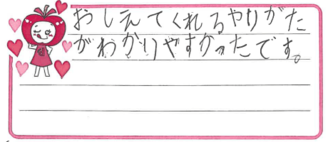 おしえてくれるやりかた
がわかりやすかったです。